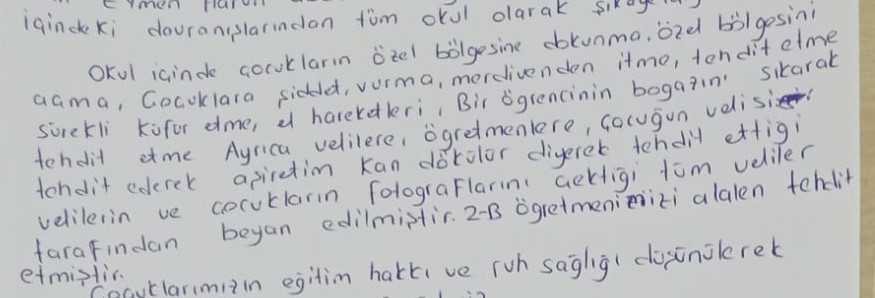 içindeki davranışlarından tüm okul olarak
Okul içinde çocukların özel bölgesine dokunma, özel bölgesini
açma, Çocuklara şiddet, vurma, merdivenden itme, tehdit etme
sürekli küfür etme, el hareketleri, Bir öğrencinin boğazını sıkarak
tehdit etme Ayrıca velilere, öğretmenlere, çocuğun velisi
tehdit ederek aşiretim kan dökülür diyerek tehdit ettiği
velilerin ve çocukların fotoğraflarını çektiği tüm veliler
tarafından beyan edilmiştir. 2-B öğretmenimizi alalen tehdit
etmiştir.
Çocuklarımızın eğitim hakkı ve ruh sağlığı düşünülerek